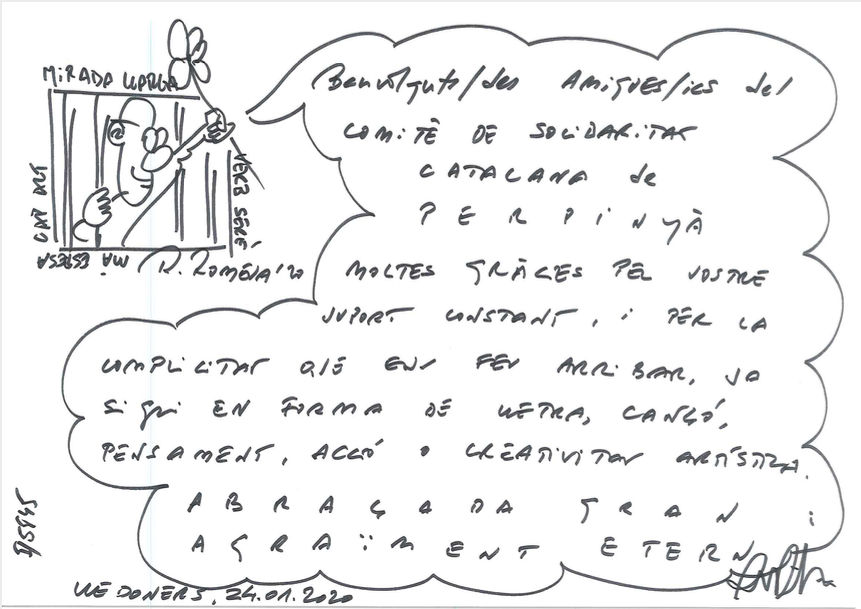 MIRADA LLARGA
CAP ALT
VERB SERÈ,
MÀ ESTESA
R. ROMEVA'20
Benvolguts/des AMIGUES/ics del
COMITÈ DE SOLIDARITAT
CATALANA de
PERPINYÀ
MOLTES GRÀCIES PEL VOSTRE
SUPORT CONSTANT, i PER LA
COMPLICITAT QUE ENS FEU ARRIBAR, JA
SigUi EN FORMA DE LLETRA, CANÇÓ,
PENSAMENT, ACCIÓ O CREATIVITAT ARTÍSTICA.
ABRAÇADA GRAN i
AGRAÏMENT ETERN
LLEDONERS, 24.01.2020